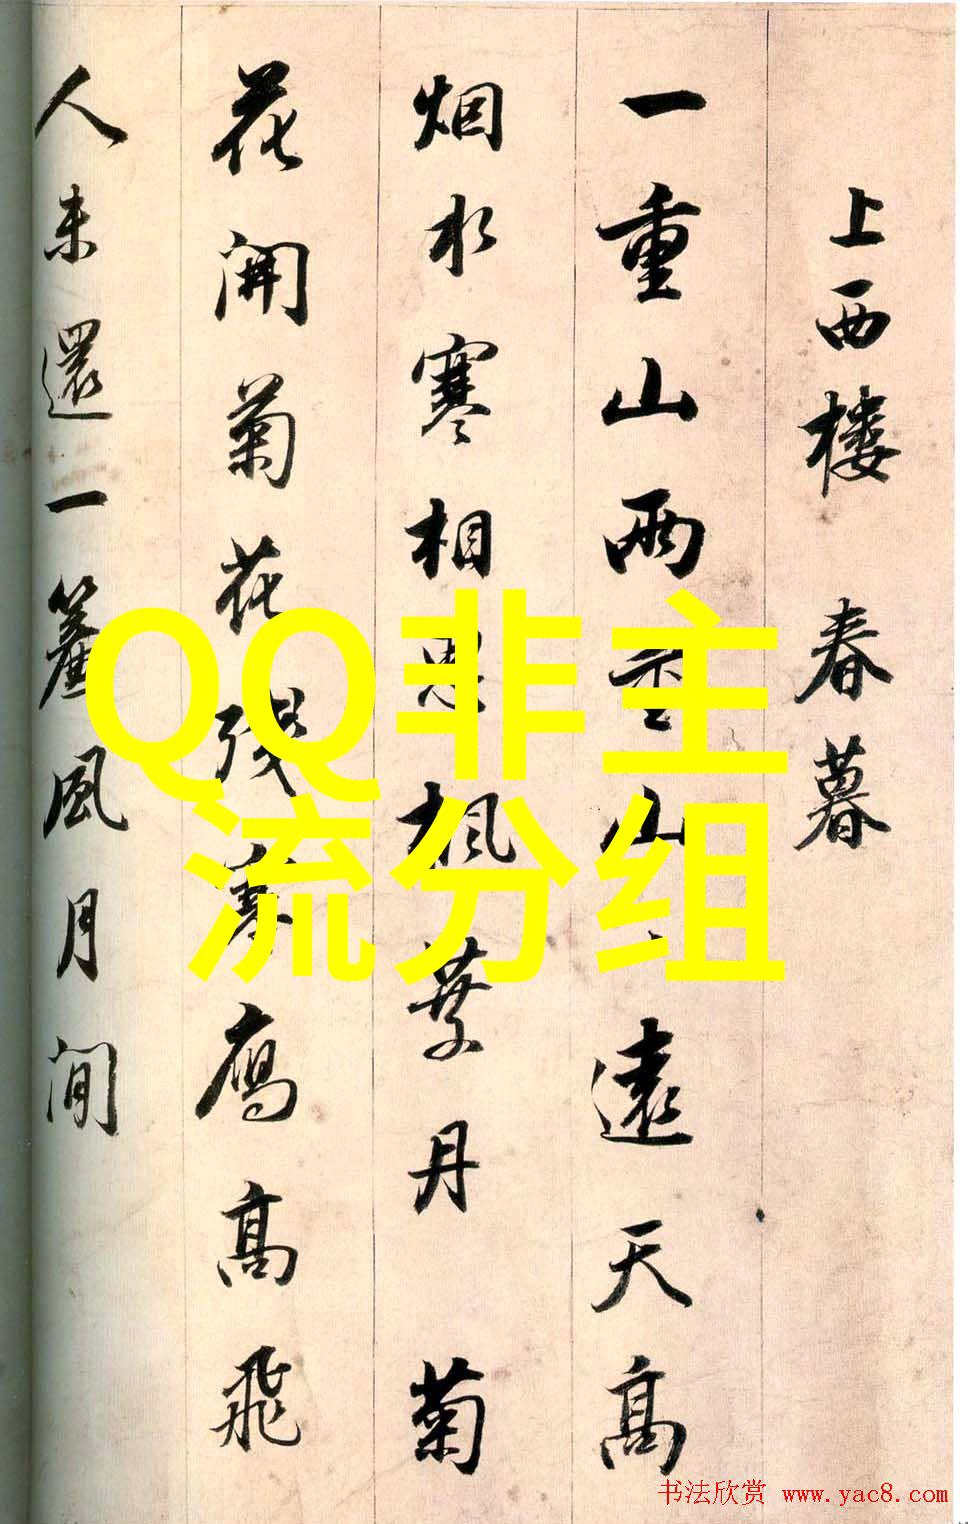 上西楼 春暮
一重山兩重山、遠天高
烟水寒相思楓葉丹 菊
花開菊花残塞鴈高飛
人未還一簾風月閒
QQ非主
流分组
书法欣赏 www.yac8.com